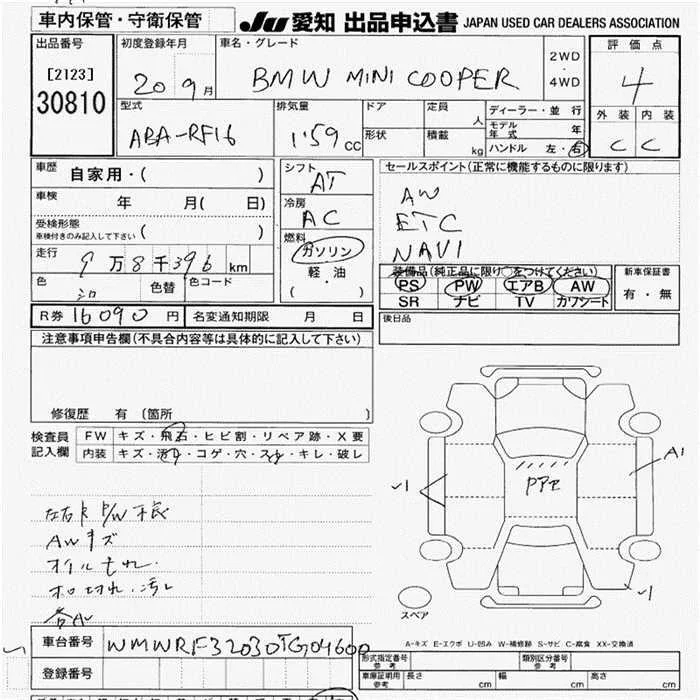 車内保管・守衛保管
JU 愛知 出品申込書 JAPAN USED CAR DEALERS ASSOCIATION
出品番号
[2123]
30810
初度登録年月
20 9月
車名・グレード
BMW MINI COOPER
2WD
・
4WD
評価点
4
外装 内装
C C
型式
ABA-RF16
排気量
1'59 CC
ドア
形状
定員 人
積載 kg
ディーラー・並行
モデル年式 年
ハンドル 左・右
車歴
自家用・( )
車検
年 月( 日)
受検形態
車検付きのみ記入して下さい ( )
走行
9万8千396 km
色
シロ
色替
色コード
シフト
AT
冷房
AC
燃料
ガソリン
軽・油
( )
セールスポイント(正常に機能するものに限ります)
AW
ETC
NAVI
装備品(純正品に限り○をつけてください)
PS PW エアB AW
SR ナビ TV カワシート
新車保証書
有・無
R券 16090 円
名変通知期限 月 日
後日品
注意事項申告欄(不具合内容等は具体的に記入して下さい)
修復歴 有 〔箇所 〕
検査員
記入欄
FW キズ・飛石・ヒビ割・リペア跡・X要
内装 キズ・汚れ・コゲ・穴・スレ・キレ・破レ
左右 P/W 不良
AWキズ
オイルもれ.
汚レ
A1
スペア
A-キズ E-エクボ U-凹み W-補修跡 S-サビ C-腐食 XX-交換済
車台番号
WMWRF32030TG04600
登録番号
形式指定番号
参考
類別区分番号
参考
車庫証明用
参考
長さ cm 幅 cm 高さ cm